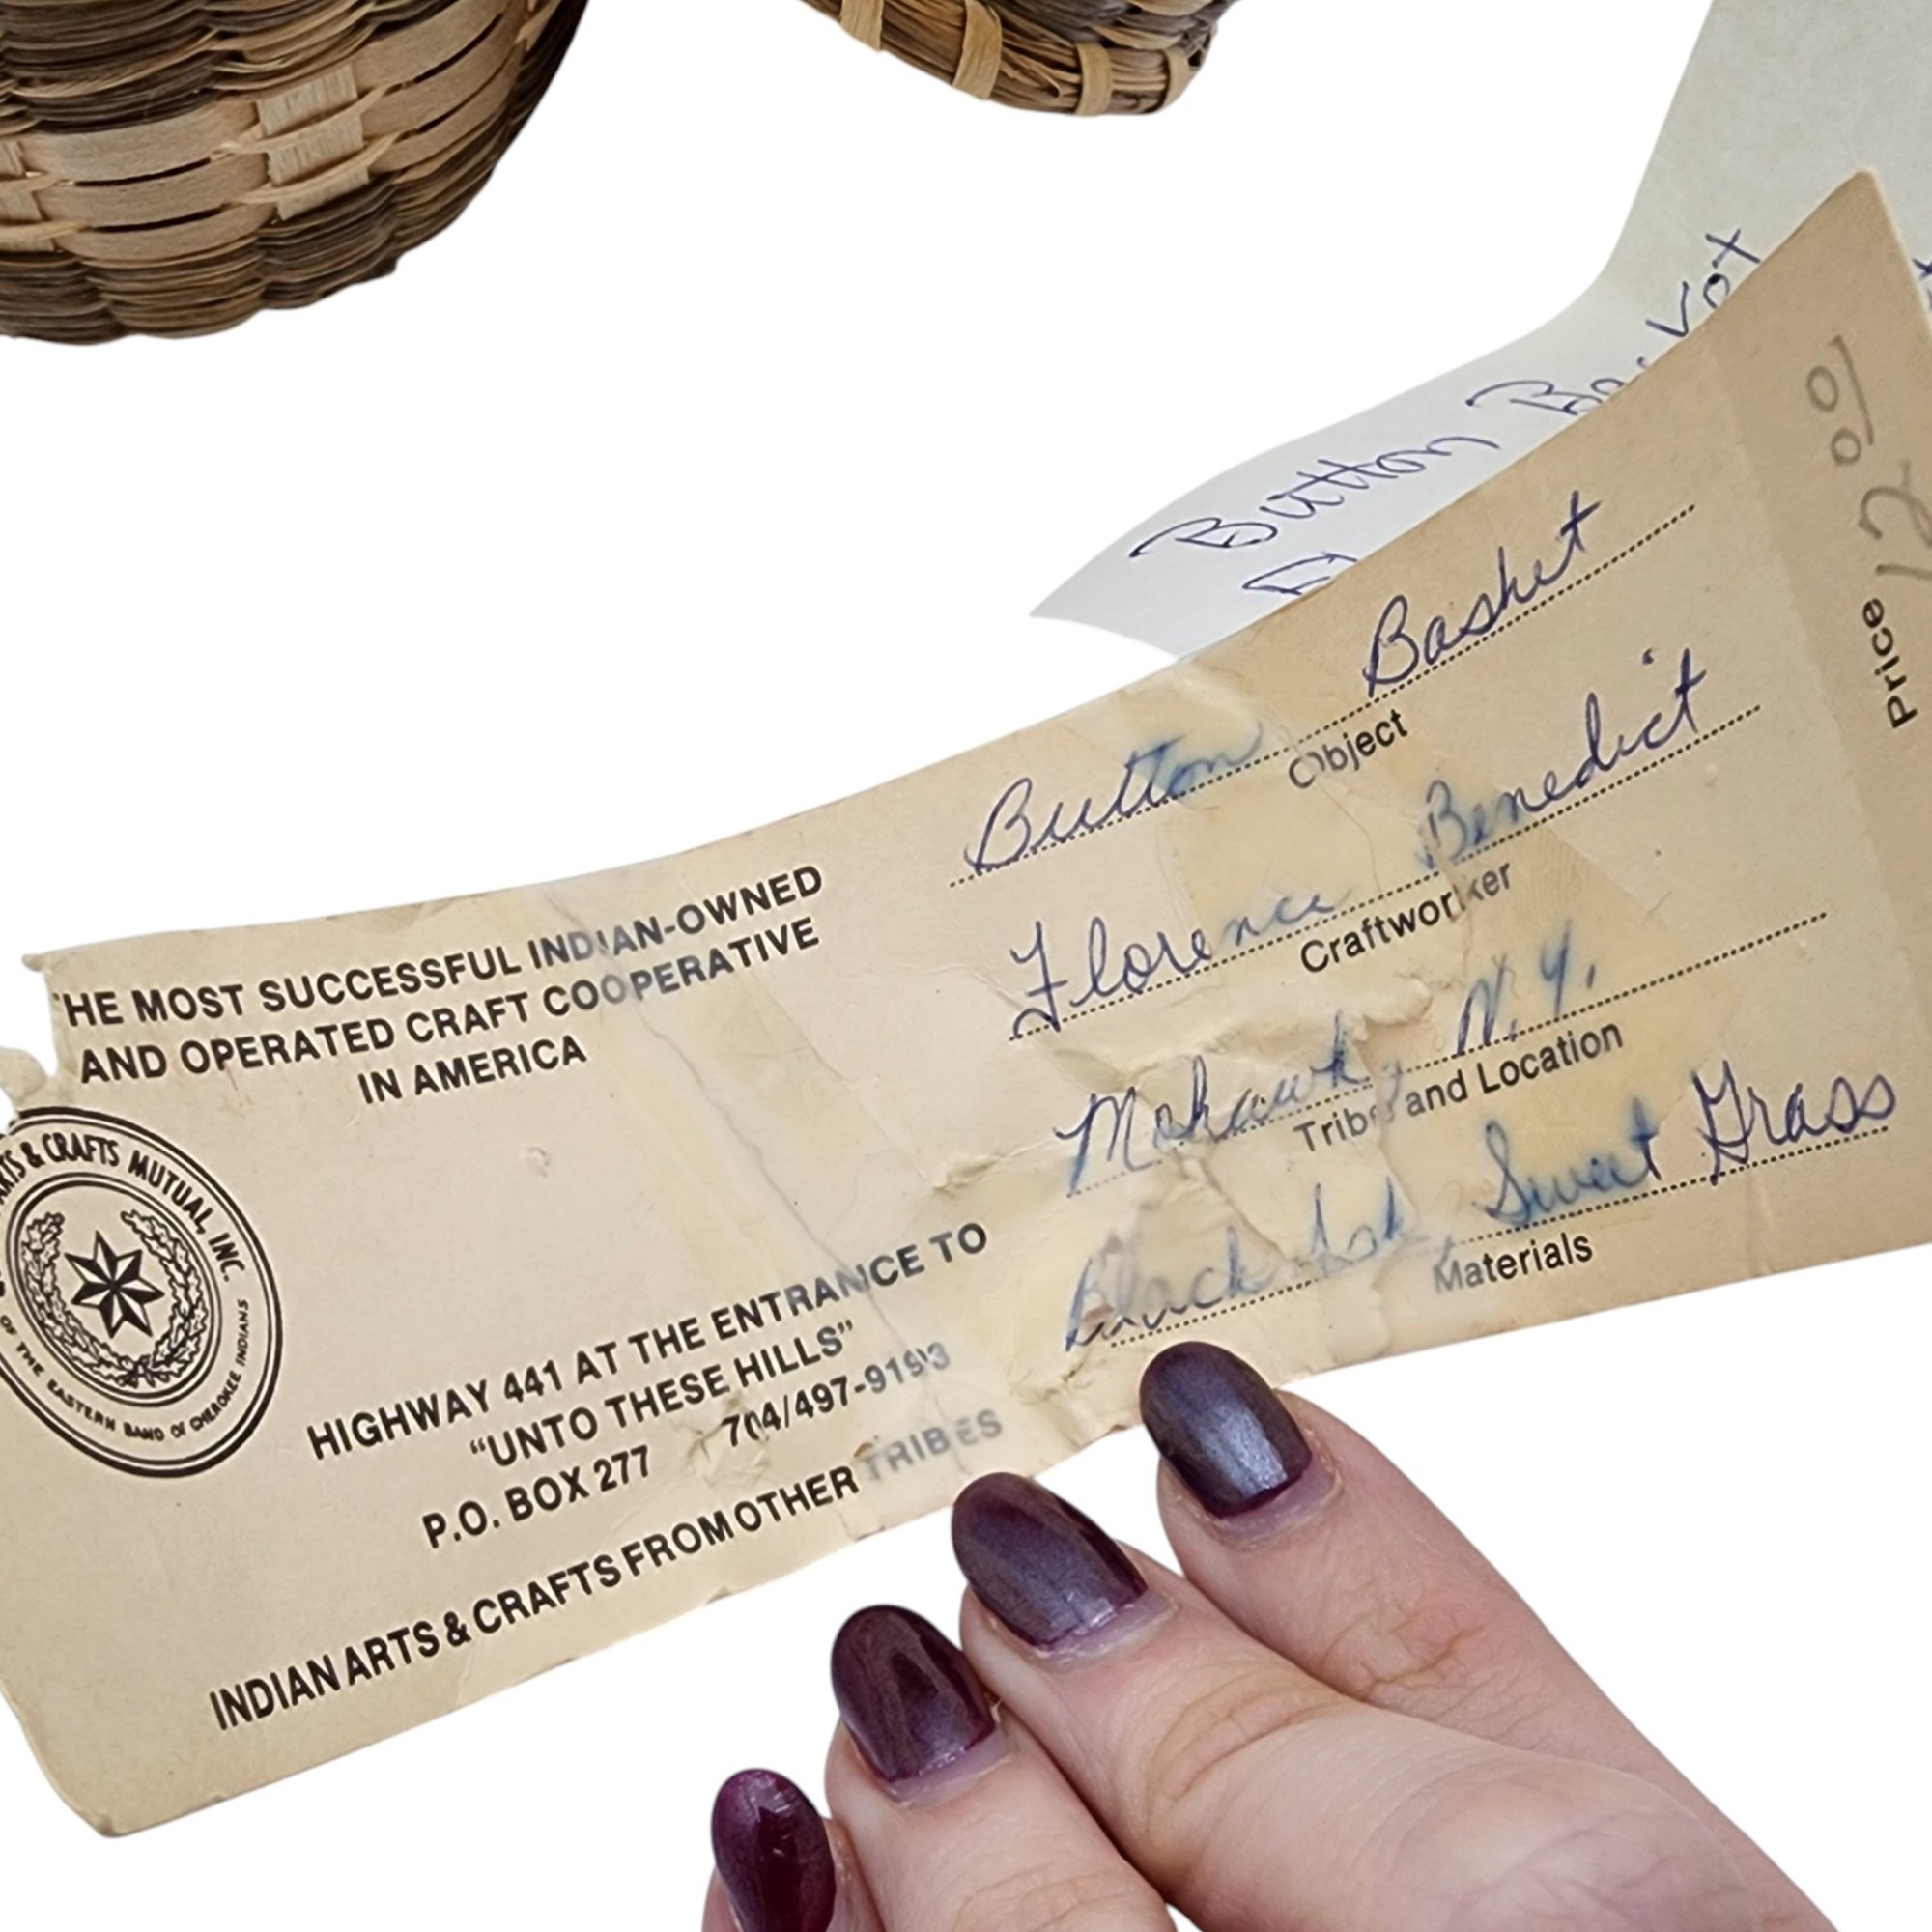 HE MOST SUCCESSFUL INDIAN-OWNED
AND OPERATED CRAFT COOPERATIVE
IN AMERICA
ARTS & CRAFTS MUTUAL, INC.
OF THE EASTERN BAND OF CHEROKEE INDIANS
HIGHWAY 441 AT THE ENTRANCE TO
“UNTO THESE HILLS”
P.O. BOX 277 704/497-9193
INDIAN ARTS & CRAFTS FROM OTHER TRIBES
Button Basket
Object
Florence Benedict
Craftworker
Mohawk, N.Y.
Tribe and Location
Black Ash, Sweet Grass
Materials
Price 12.00
Button